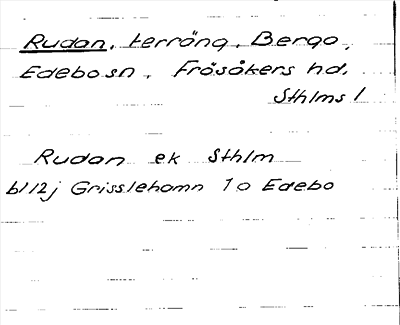 Rudan, terräng, Bergo,
Edebo sn, Frösåkers hd,
Sthlms l
Rudan ek Sthlm
bl 12j Grisslehamn 10 Edebo